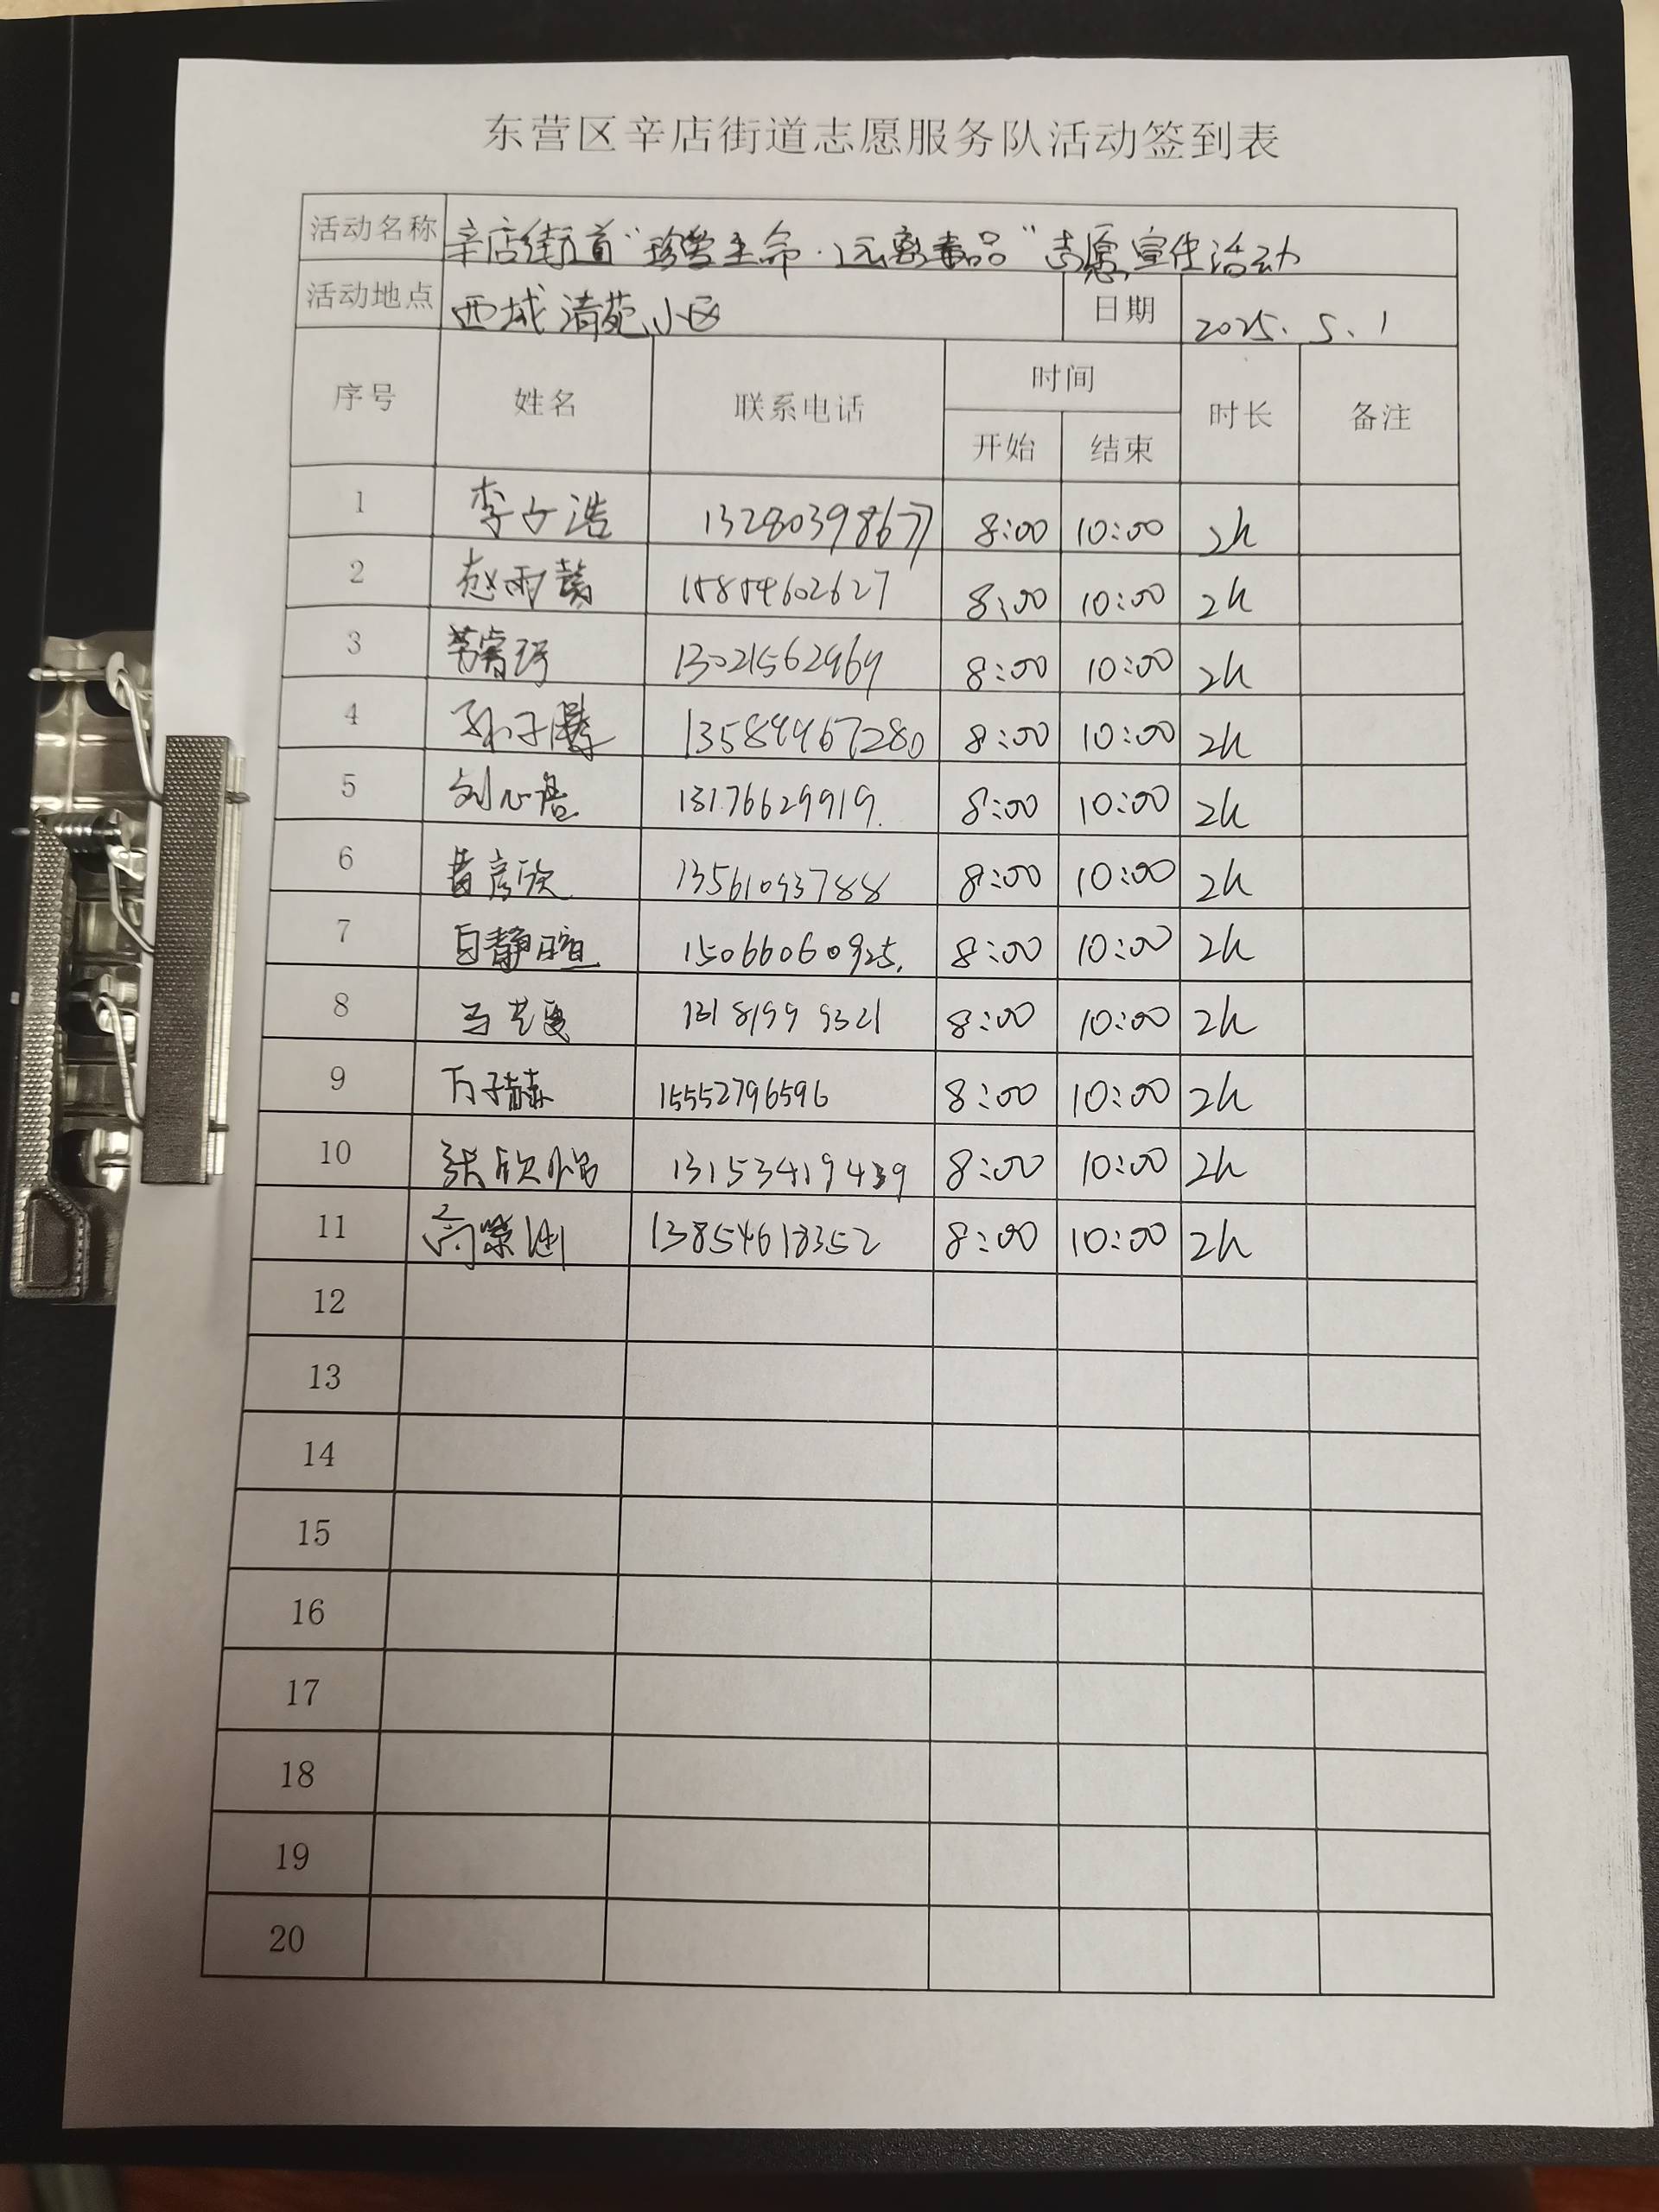 东营区辛店街道志愿服务队活动签到表
活动名称 辛店街道“珍爱生命·远离毒品”志愿宣传活动
活动地点 西城清苑小区 日期 2025.5.1
序号 姓名 联系电话 时间 时长 备注
开始 结束
1 李文浩 13280398677 8:00 10:00 2h
2 赵雨萱 15854602627 8:00 10:00 2h
3 13021562969 8:00 10:00 2h
4 孙子腾 13589967280 8:00 10:00 2h
5 刘心语 13176629919. 8:00 10:00 2h
6 黄彦欣 13561093788 8:00 10:00 2h
7 白静暄 15066060925. 8:00 10:00 2h
8 马艺 13181999321 8:00 10:00 2h
9 万子赫 15552796596 8:00 10:00 2h
10 张欣怡 13153419439 8:00 10:00 2h
11 高 13854618352 8:00 10:00 2h
12
13
14
15
16
17
18
19
20